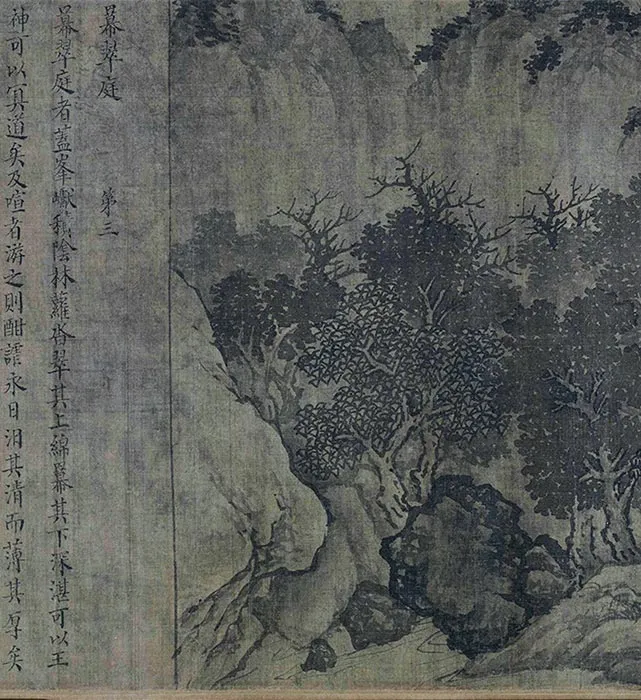 羃翠庭 第三
羃翠庭者蓋峯巘積陰林蘿沓翠其上綿羃其下深湛可以王
神可以冥道矣及喧者游之則酣謔永日汨其清而薄其厚矣